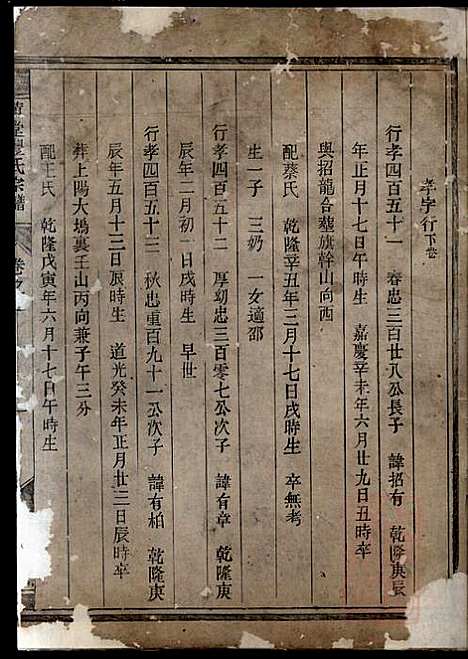 孝字行下卷
行孝四百五十一　春忠三百廿八公長子　諱招有　乾隆庚辰
年正月十七日午時生　嘉慶辛未年六月廿九日丑時卒
與招龍合塟旗幹山向西
配蔡氏　乾隆辛丑年三月十七日戌時生　卒無考
生一子　三奶　一女適邵
行孝四百五十二　厚幼忠三百零七公次子　諱有章　乾隆庚
辰年二月初一日戌時生　早世
行孝四百五十三　秋忠重百九十一公次子　諱有柏　乾隆庚
辰年五月十三日辰時生　道光癸未年正月廿三日辰時卒
葬上陽大塢裏壬山丙向兼子午三分
配王氏　乾隆戊寅年六月十七日午時生
堂廖氏宗譜　卷之